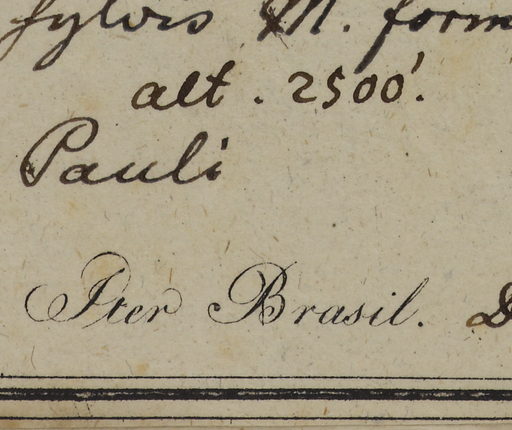 sylvis M. form
alt. 2500'.
Pauli
Iter Brasil.